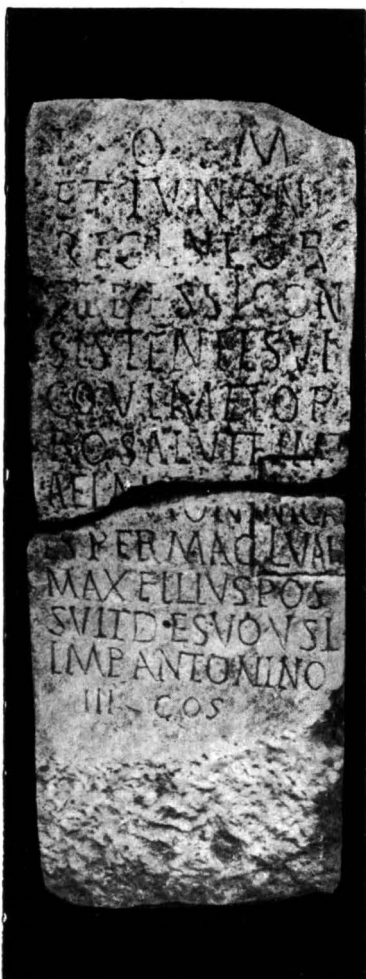 I O M
ET IVNONI
REGINE LOR
ET BESSI CON
SISTENTES VI
CO VLMETO P
RO SALVTE
AELI
ES PER MAG L VAL
MAX ELLIVS POS
SVIT D·E SVO V S L
IMP ANTONINO
III COS